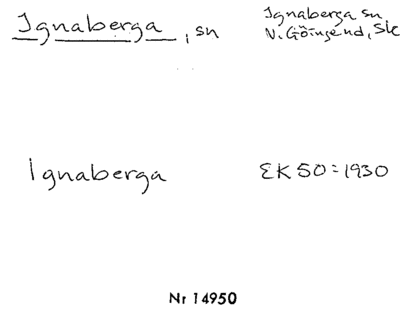 Ignaberga, sn
Ignaberga sn
V. Göinge hd, Sk
Ignaberga
EK 50=1930
Nr 14950